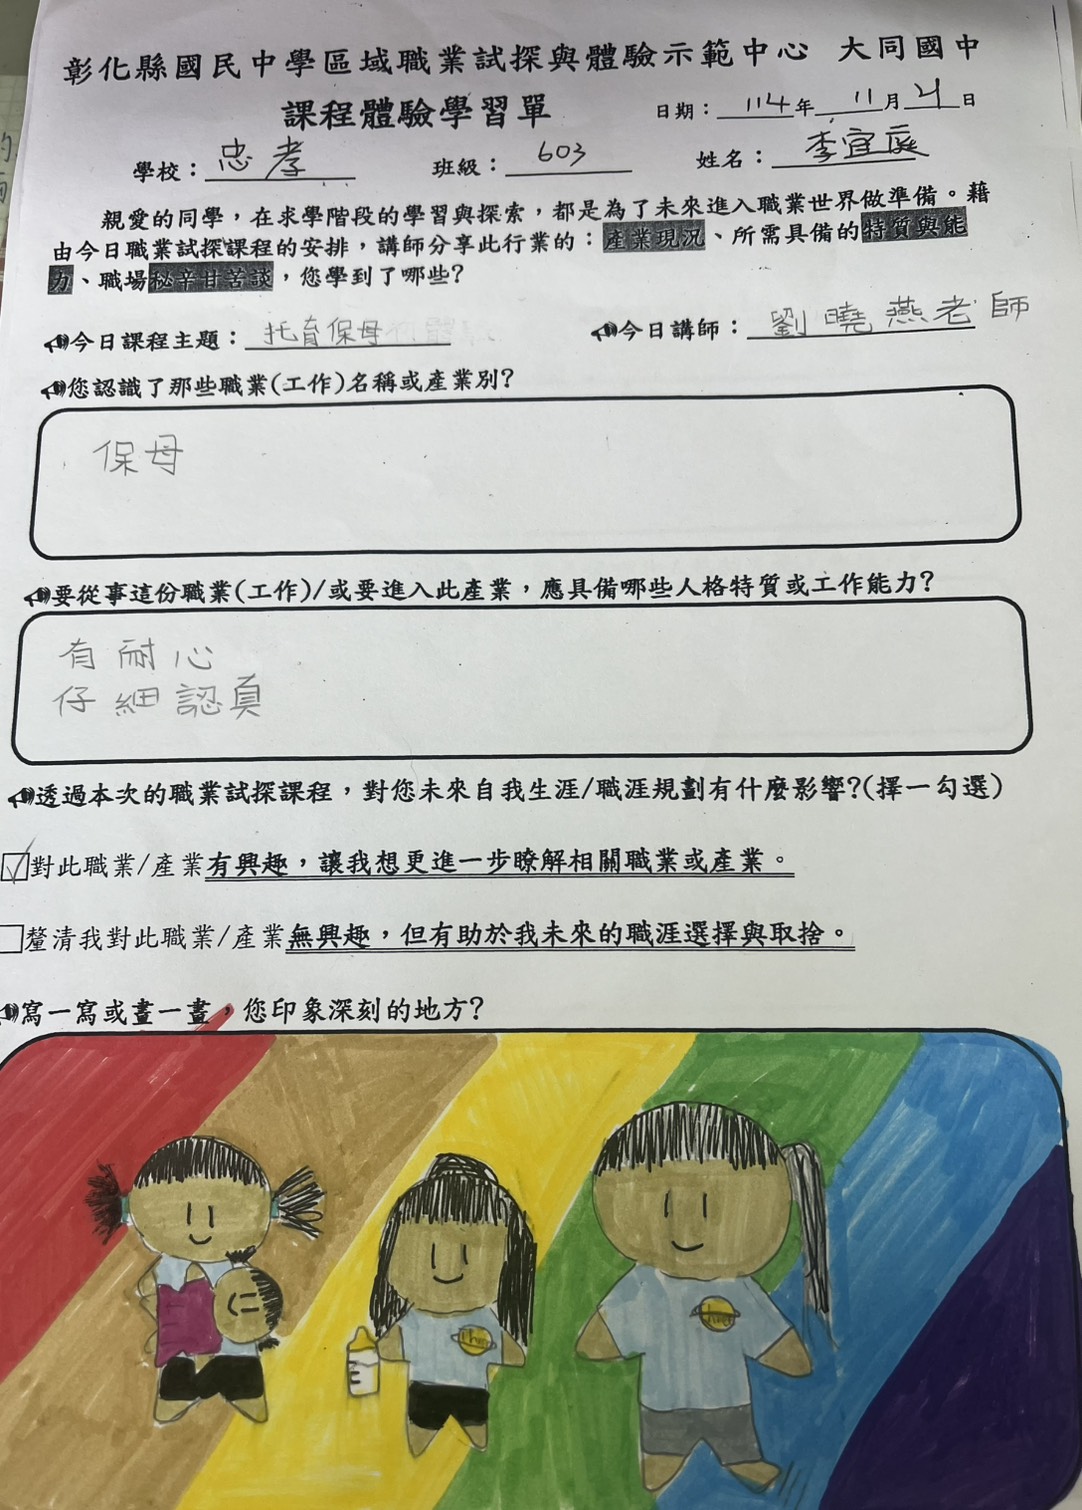 彰化縣國民中學區域職業試探與體驗示範中心 大同國中
課程體驗學習單
日期：114年11月21日
學校：忠孝 班級：603 姓名：李宜庭
親愛的同學，在求學階段的學習與探索，都是為了未來進入職業世界做準備。藉
由今日職業試探課程的安排，講師分享此行業的：產業現況、所需具備的特質與能
力、職場秘辛甘苦談，您學到了哪些?
今日課程主題：托育保母
今日講師：劉曉燕老師
您認識了那些職業(工作)名稱或產業別?
保母
要從事這份職業(工作)/或要進入此產業，應具備哪些人格特質或工作能力?
有耐心
仔細認真
透過本次的職業試探課程，對您未來自我生涯/職涯規劃有什麼影響?(擇一勾選)
☑對此職業/產業有興趣，讓我想更進一步瞭解相關職業或產業。
□釐清我對此職業/產業無興趣，但有助於我未來的職涯選擇與取捨。
寫一寫或畫一畫，您印象深刻的地方?